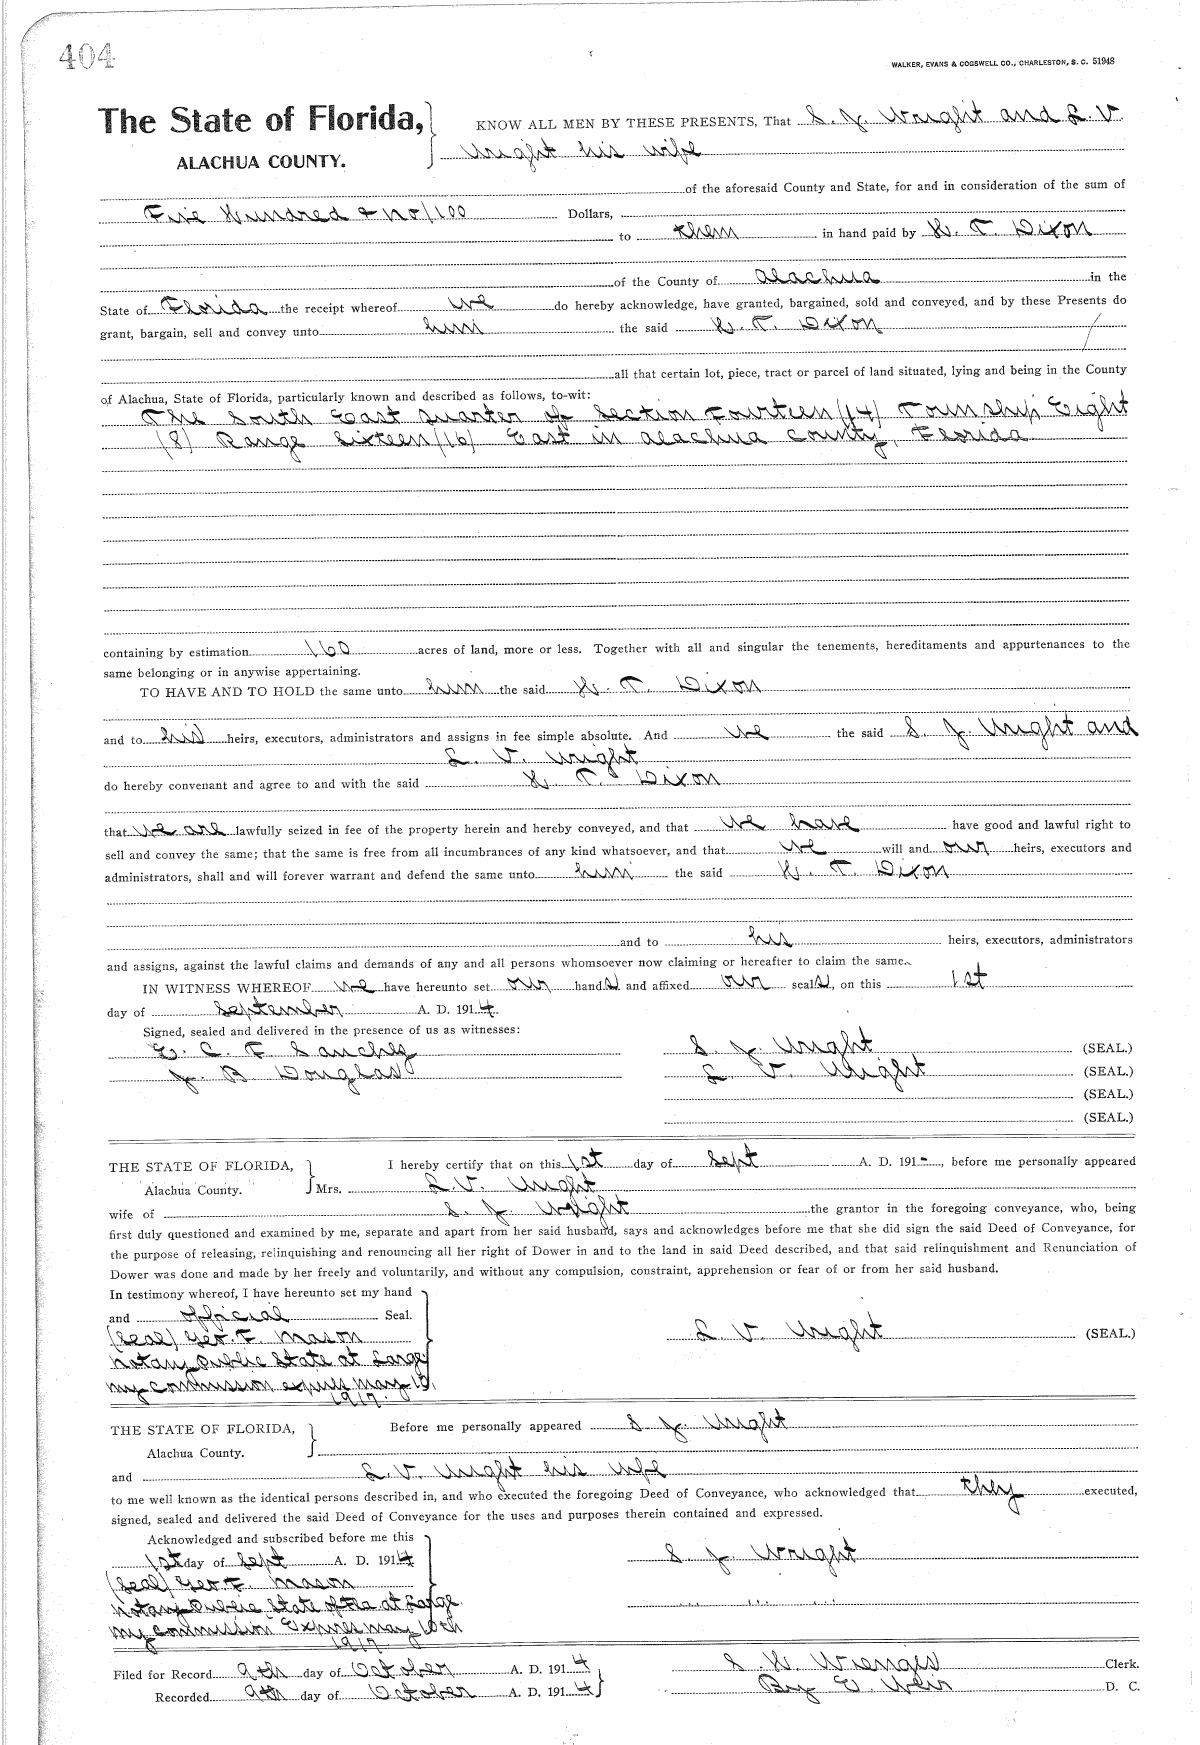 404
WALKER, EVANS & COGSWELL CO., CHARLESTON, S. C. 51948
The State of Florida, KNOW ALL MEN BY THESE PRESENTS, That S. J. Wright and L. V.
ALACHUA COUNTY. Wright his wife
of the aforesaid County and State, for and in consideration of the sum of
Five Hundred & no/100 Dollars,
to them in hand paid by
of the County of Alachua in the
State of Florida the receipt whereof we do hereby acknowledge, have granted, bargained, sold and conveyed, and by these Presents do
grant, bargain, sell and convey unto him the said T. Dixon
all that certain lot, piece, tract or parcel of land situated, lying and being in the County
of Alachua, State of Florida, particularly known and described as follows, to-wit:
The South East Quarter of Section Fourteen (14) Township Eight
(8) Range Sixteen (16) East in Alachua County, Florida
containing by estimation 160 acres of land, more or less. Together with all and singular the tenements, hereditaments and appurtenances to the
same belonging or in anywise appertaining.
TO HAVE AND TO HOLD the same unto him the said T. Dixon
and to his heirs, executors, administrators and assigns in fee simple absolute. And we the said S. J. Wright and
L. V. Wright
do hereby convenant and agree to and with the said T. Dixon
that we are lawfully seized in fee of the property herein and hereby conveyed, and that we have have good and lawful right to
sell and convey the same; that the same is free from all incumbrances of any kind whatsoever, and that we will and our heirs, executors and
administrators, shall and will forever warrant and defend the same unto him the said T. Dixon
and to his heirs, executors, administrators
and assigns, against the lawful claims and demands of any and all persons whomsoever now claiming or hereafter to claim the same.
IN WITNESS WHEREOF we have hereunto set our hands and affixed our seals, on this 1st
day of September A. D. 1914.
Signed, sealed and delivered in the presence of us as witnesses:
E. C. F. Sanchez S. J. Wright (SEAL.)
J. B Douglas L. V. Wright (SEAL.)
(SEAL.)
(SEAL.)
THE STATE OF FLORIDA, I hereby certify that on this 1st day of Sept A. D. 191-, before me personally appeared
Alachua County. Mrs. L. V. Wright
wife of S. J. Wright the grantor in the foregoing conveyance, who, being
first duly questioned and examined by me, separate and apart from her said husband, says and acknowledges before me that she did sign the said Deed of Conveyance, for
the purpose of releasing, relinquishing and renouncing all her right of Dower in and to the land in said Deed described, and that said relinquishment and Renunciation of
Dower was done and made by her freely and voluntarily, and without any compulsion, constraint, apprehension or fear of or from her said husband.
In testimony whereof, I have hereunto set my hand
and official Seal.
(Seal) Geo. F. Mason L. V. Wright (SEAL.)
Notary Public State at Large
my commission expires may 10,
1917.
THE STATE OF FLORIDA, Before me personally appeared S J. Wright
Alachua County.
and L. V. Wright his wife
to me well known as the identical persons described in, and who executed the foregoing Deed of Conveyance, who acknowledged that they executed,
signed, sealed and delivered the said Deed of Conveyance for the uses and purposes therein contained and expressed.
Acknowledged and subscribed before me this
1st day of Sept A. D. 1914 S J. Wright
(Seal) Geo. F. Mason
Notary Public State of Fla at Large
my commission Expires may 10th
1917
Filed for Record 9th day of October A. D. 1914 Clerk.
Recorded 9th day of October A. D. 1914 By E. Weir D. C.